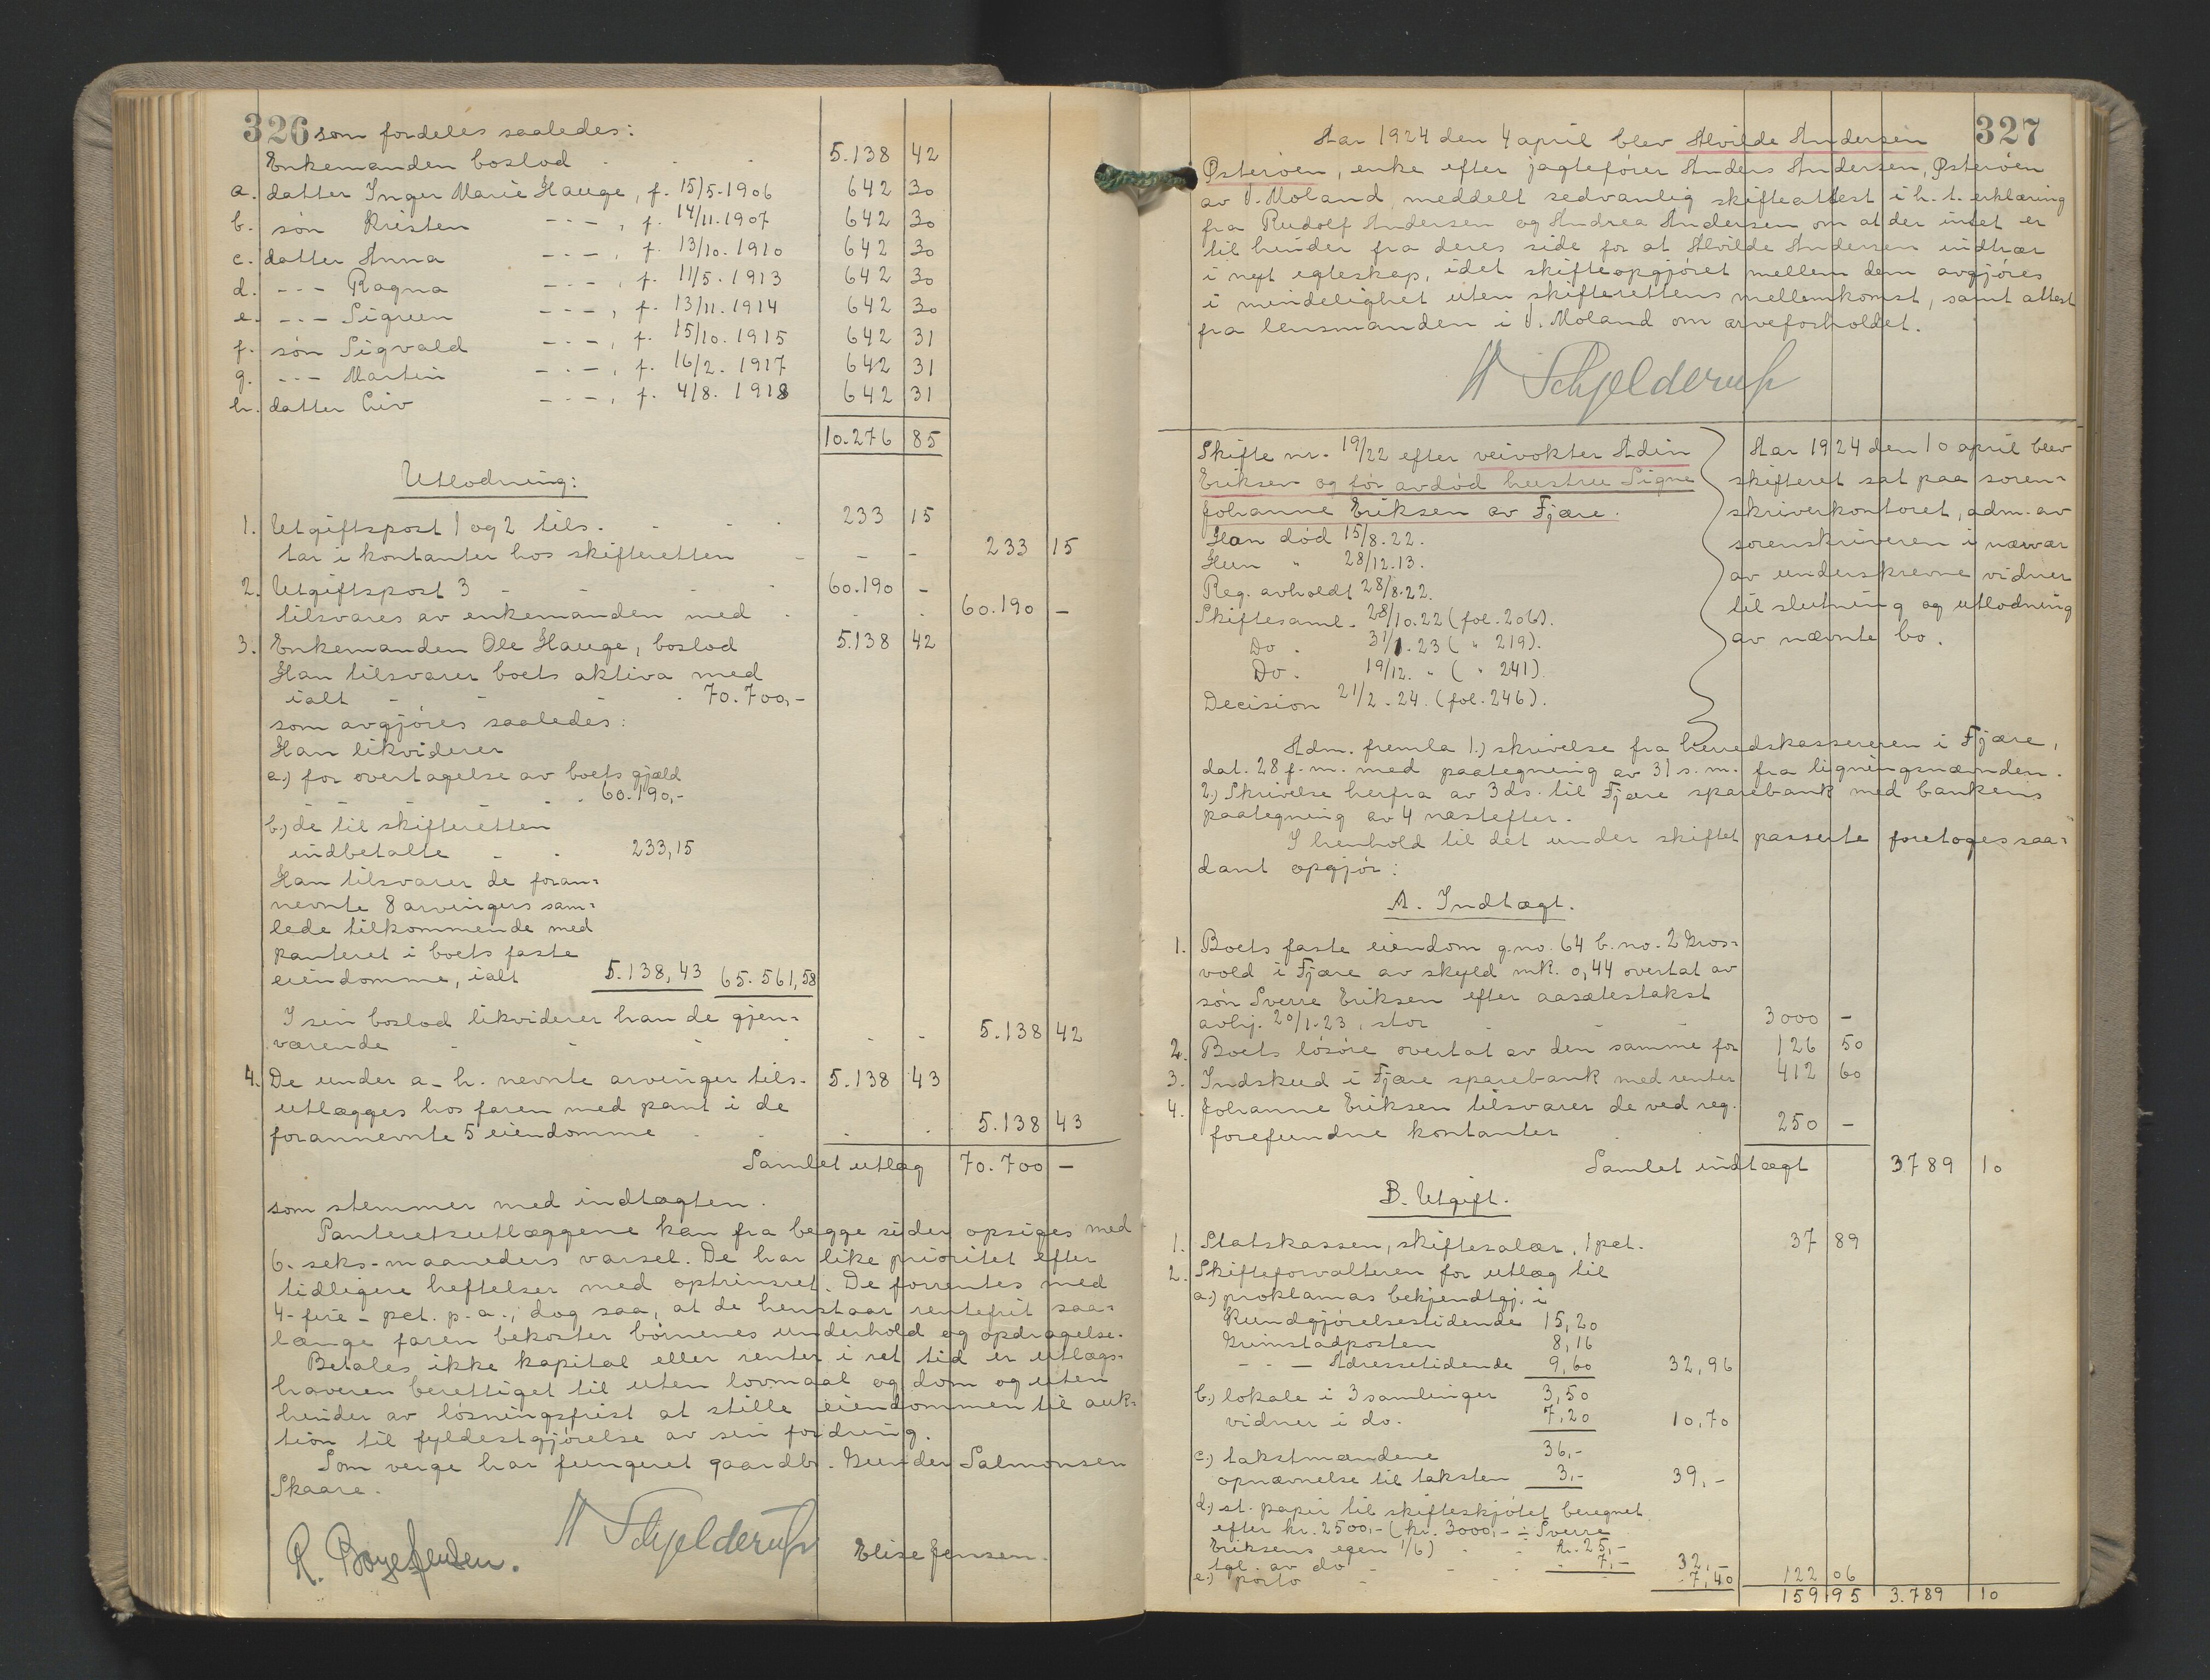 326 som fordeles saaledes:
Enkemanden boslod - - - 5.138 42
a. datter Inger Marie Hauge, f. 15/5-1906 642 30
b. søn Kristen -"-, f. 14/11.1907 642 30
c. datter Anna -"-, f. 13/10.1910 642 30
d. -"- Ragna -"-, f. 11/5.1913 642 30
e. -"- Sigrun -"-, f. 13/11.1914 642 30
f. søn Sigvald -"-, f. 15/10.1915 642 31
g. -"- Martin -"-, f. 16/2.1917 642 31
h. datter Liv -"-, f. 4/8.1918 642 31
10.276 85
Utlodning:
1. Utgiftspost 1 og 2 tils. - - - 233 15
tar i kontanter hos skifteretten - - - 233 15
2. Utgiftspost 3 - - - 60.190 -
tilsvares av enkemanden med - - - 60.190 -
3. Enkemanden Ole Hauge, boslod 5.138 42
Han tilsvarer boets aktiva med
ialt - - - 70.700,-
som avgjøres saaledes:
Han likviderer
a.) for overtagelse av boets gjæld
- - - 60.190,-
b.) de til skifteretten
indbetalte - - 233,15
Han tilsvarer de foran=
nevnte 8 arvingers sam=
lede tilkommende med
panteret i boets faste
eiendomme, ialt 5.138,43 65.561,58
I sin boslod likviderer han de gjen=
værende - - - 5.138 42
4. De under a-h. nevnte arvinger tils. 5.138 43
utlægges hos faren med pant i de
forannevnte 5 eiendomme - - - 5.138 43
Samlet utlæg 70.700 -
som stemmer med indtægten.
Panteretsutlæggene kan fra begge sider opsiges med
6-seks-maaneders varsel. De har like prioritet efter
tidligere heftelser med optrinsret. De forrentes med
4-fire-pct. p.a., dog saa, at de henstaar rentefrit saa=
længe faren bekoster børnenes underhold og opdragelse.
Betales ikke kapital eller renter i ret tid er utlægs=
haveren berettiget til uten lovmaal og dom og uten
hinder av løsningsfrist at stille eiendommen til auk=
tion til fyldestgjørelse av sin fordring.
Som verge har fungeret gaardbr. Gunder Salmonsen
Skaare.
R. Boye Jensen. A Schjelderup Elise Jensen.
327
Aar 1924 den 4 april blev Alvilde Andersen
Østerøen, enke efter jagtefører Anders Andersen, Østerøen
av V. Moland, meddelt sedvanlig skifteattest i h. t. erklæring
fra Rudolf Andersen og Andrea Andersen om at der intet er
til hinder fra deres side for at Alvilde Andersen indtrær
i nyt egteskap, idet skifteopgjøret mellem dem avgjøres
i mindelighet uten skifterettens mellemkomst, samt attest
fra lensmanden i V. Moland om arveforholdet.
A Schjelderup
Skifte nr. 19/22 efter veivokter Adin
Eriksen og før avdød hustru Signe
Johanne Eriksen av Fjære.
Han død 15/8.22.
Hun " 28/12.13.
Reg. avholdt 28/8.22.
Skiftesaml. 28/10.22 (fol. 206).
Do. 31/1.23 ( " 219).
Do. 19/12. " ( " 241).
Decision 21/2.24. (fol. 246).
Aar 1924 den 10 april blev
skifteret sat paa soren=
skriverkontoret, adm. av
sorenskriveren i nærvær
av underskrevne vidner
til slutning og utlodning
av nævnte bo.
Adm. fremla 1.) skrivelse fra herredskassereren i Fjære,
dat. 28 f. m. med paategning av 31 s. m. fra ligningsnævnden.
2.) Skrivelse herfra av 3 ds. til Fjære sparebank med bankens
paategning av 4 næstefter.
I henhold til det under skiftet passerte foretoges saa=
dant opgjør:
A. Indtægt.
1. Boets faste eiendom g.no. 64 b.no. 2 Gros=
vold i Fjære av skyld mk. 0,44 overtat av
søn Sverre Eriksen efter aasætestakst
avhj. 20/1.23, stor - - - 3000 -
2. Boets løsøre overtat av den samme for 126 50
3. Indskud i Fjære sparebank med renter 412 60
4. Johanne Eriksen tilsvarer de ved reg.
forefundne kontanter 250 -
Samlet indtægt 3789 10
B. Utgift.
1. Statskassen, skiftesalær, 1 pct. 37 89
2. Skifteforvalteren for utlæg til
a.) proklamas bekjendtgj. i
Kundgjørelsestidende 15,20
Grimstadposten 8,16
-"- Adressetidende 9,60 32,96
b.) lokale i 3 samlinger 3,50
vidner i do. 7,20 10,70
c.) takstmændene 36,-
opnævnelse til taksten 3,- 39,-
d.) st. papir til skifteskjøtet beregnet
efter kr. 2500,- (kr. 3000,- ÷ Sverre
Eriksens egen 1/6) - - kr. 25,-
tgl. av do - - - 7,- 32,-
e.) porto - - - 7,40 122 06
159 95 3.789 10